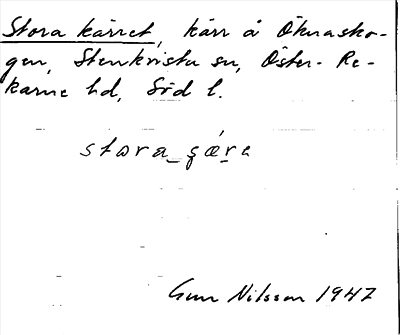 Stora kärret, kärr å Öknasko-
gen, Stenkvista sn, Öster-Re-
karne hd, Söd l.
stora çæ̀re
Gun Nilsson 1947